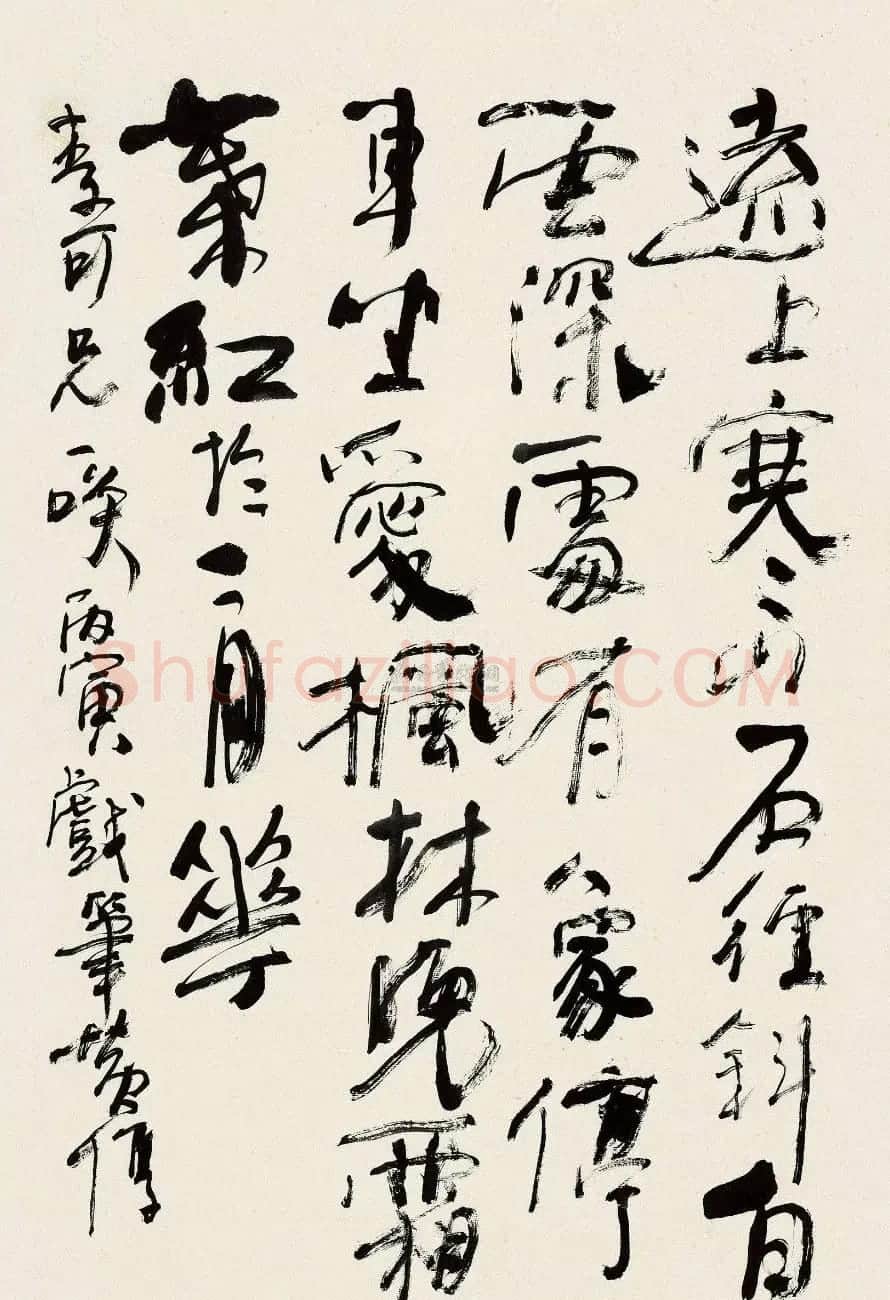 遠上寒山石徑斜白
雲深處有人家停
車坐愛楓林晚霜
葉紅於二月華
李可兄一咲丙寅戲筆黃惇
Shufaziliao.COM